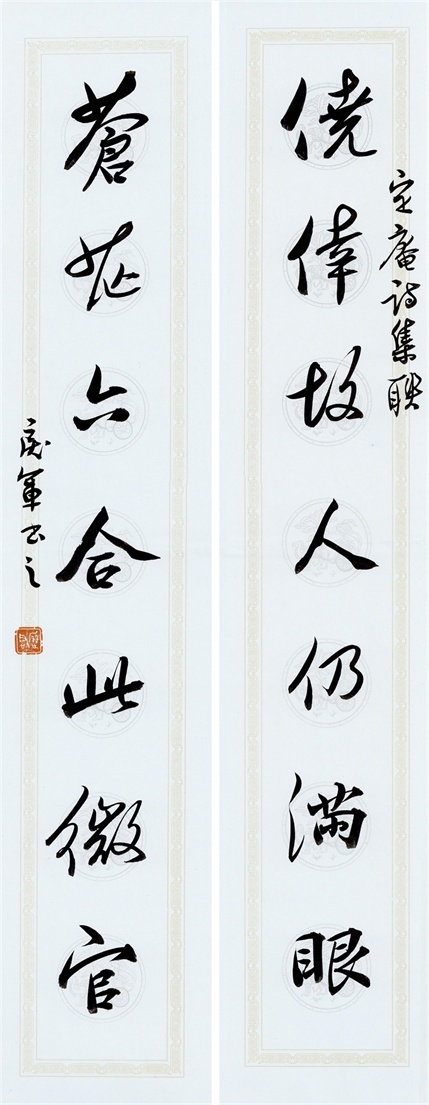 定庵诗集联
侥倖故人仍满眼
蒼茫六合此微官
军书之